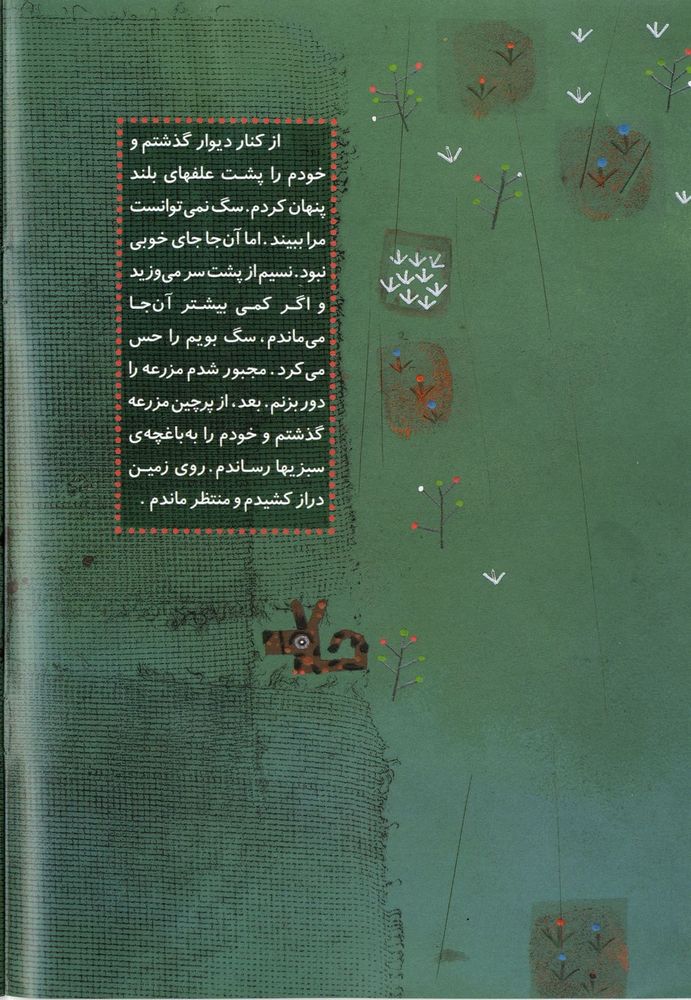 از کنار دیوار گذشتم و
خودم را پشت علفهای بلند
پنهان کردم. سگ نمی‌توانست
مرا ببیند. اما آن‌جا جای خوبی
نبود. نسیم از پشت سر می‌وزید
و اگر کمی بیشتر آن‌جا
می‌ماندم، سگ بویم را حس
می‌کرد. مجبور شدم مزرعه را
دور بزنم. بعد، از پرچین مزرعه
گذشتم و خودم را به‌باغچه‌ی
سبزیها رساندم. روی زمین
دراز کشیدم و منتظر ماندم.